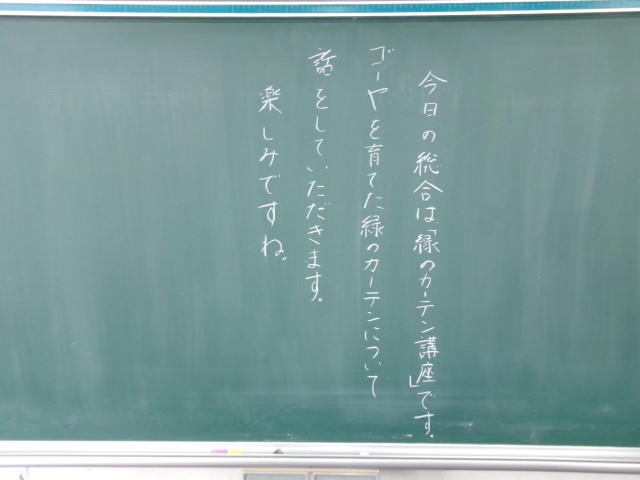 今日の総合は「緑のカーテン講座」です。
ゴーヤを育てた緑のカーテンについて
話をしていただきます。
楽しみですね。